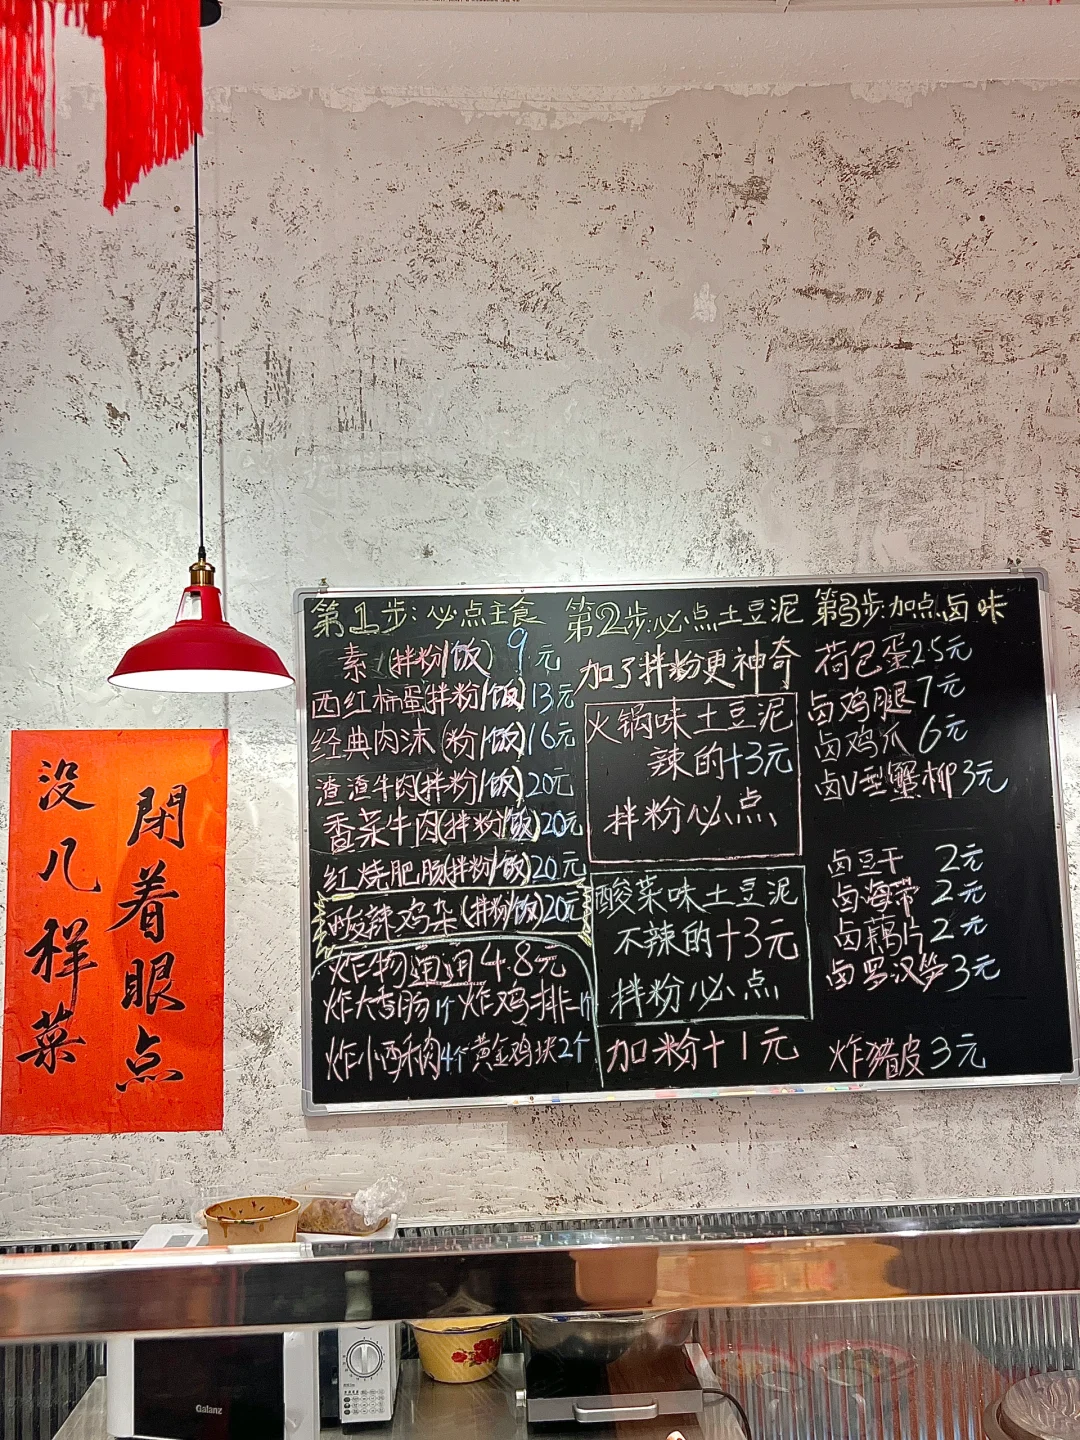 没几样菜
閉着眼点
第1步:必点主食
素(拌粉/饭)9元
西红柿蛋拌粉/饭)13元
经典肉沫(粉/饭)16元
渣渣牛肉(拌粉/饭)20元
香菜牛肉(拌粉/饭)20元
红烧肥肠(拌粉/饭)20元
酸辣鸡杂(拌粉/饭)20元
炸物 4.8元
炸大香肠1个 炸鸡排一个
炸小酥肉4个 黄金鸡块2个
第2步:必点土豆泥
加了拌粉更神奇
火锅味土豆泥
辣的+3元
拌粉必点
酸菜味土豆泥
不辣的+3元
拌粉必点
加粉+1元
第3步:加点卤味
荷包蛋2.5元
卤鸡腿7元
卤鸡爪6元
卤V型蟹柳3元
卤豆干 2元
卤海带 2元
卤藕片2元
卤罗汉笋3元
炸猪皮3元
Galanz